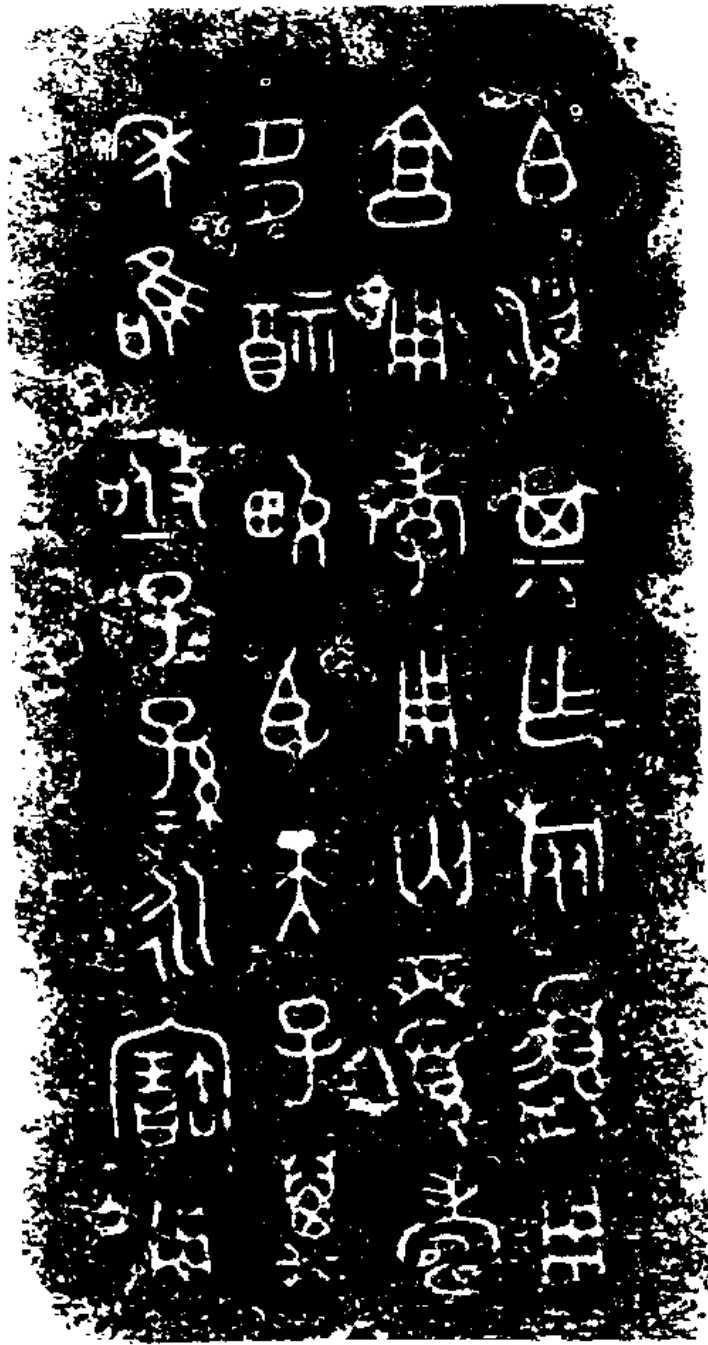 白汈其乍旅盨用
享用孝用匄眉壽
多福畯臣天子萬
年唯亟子＝孫＝永寶用